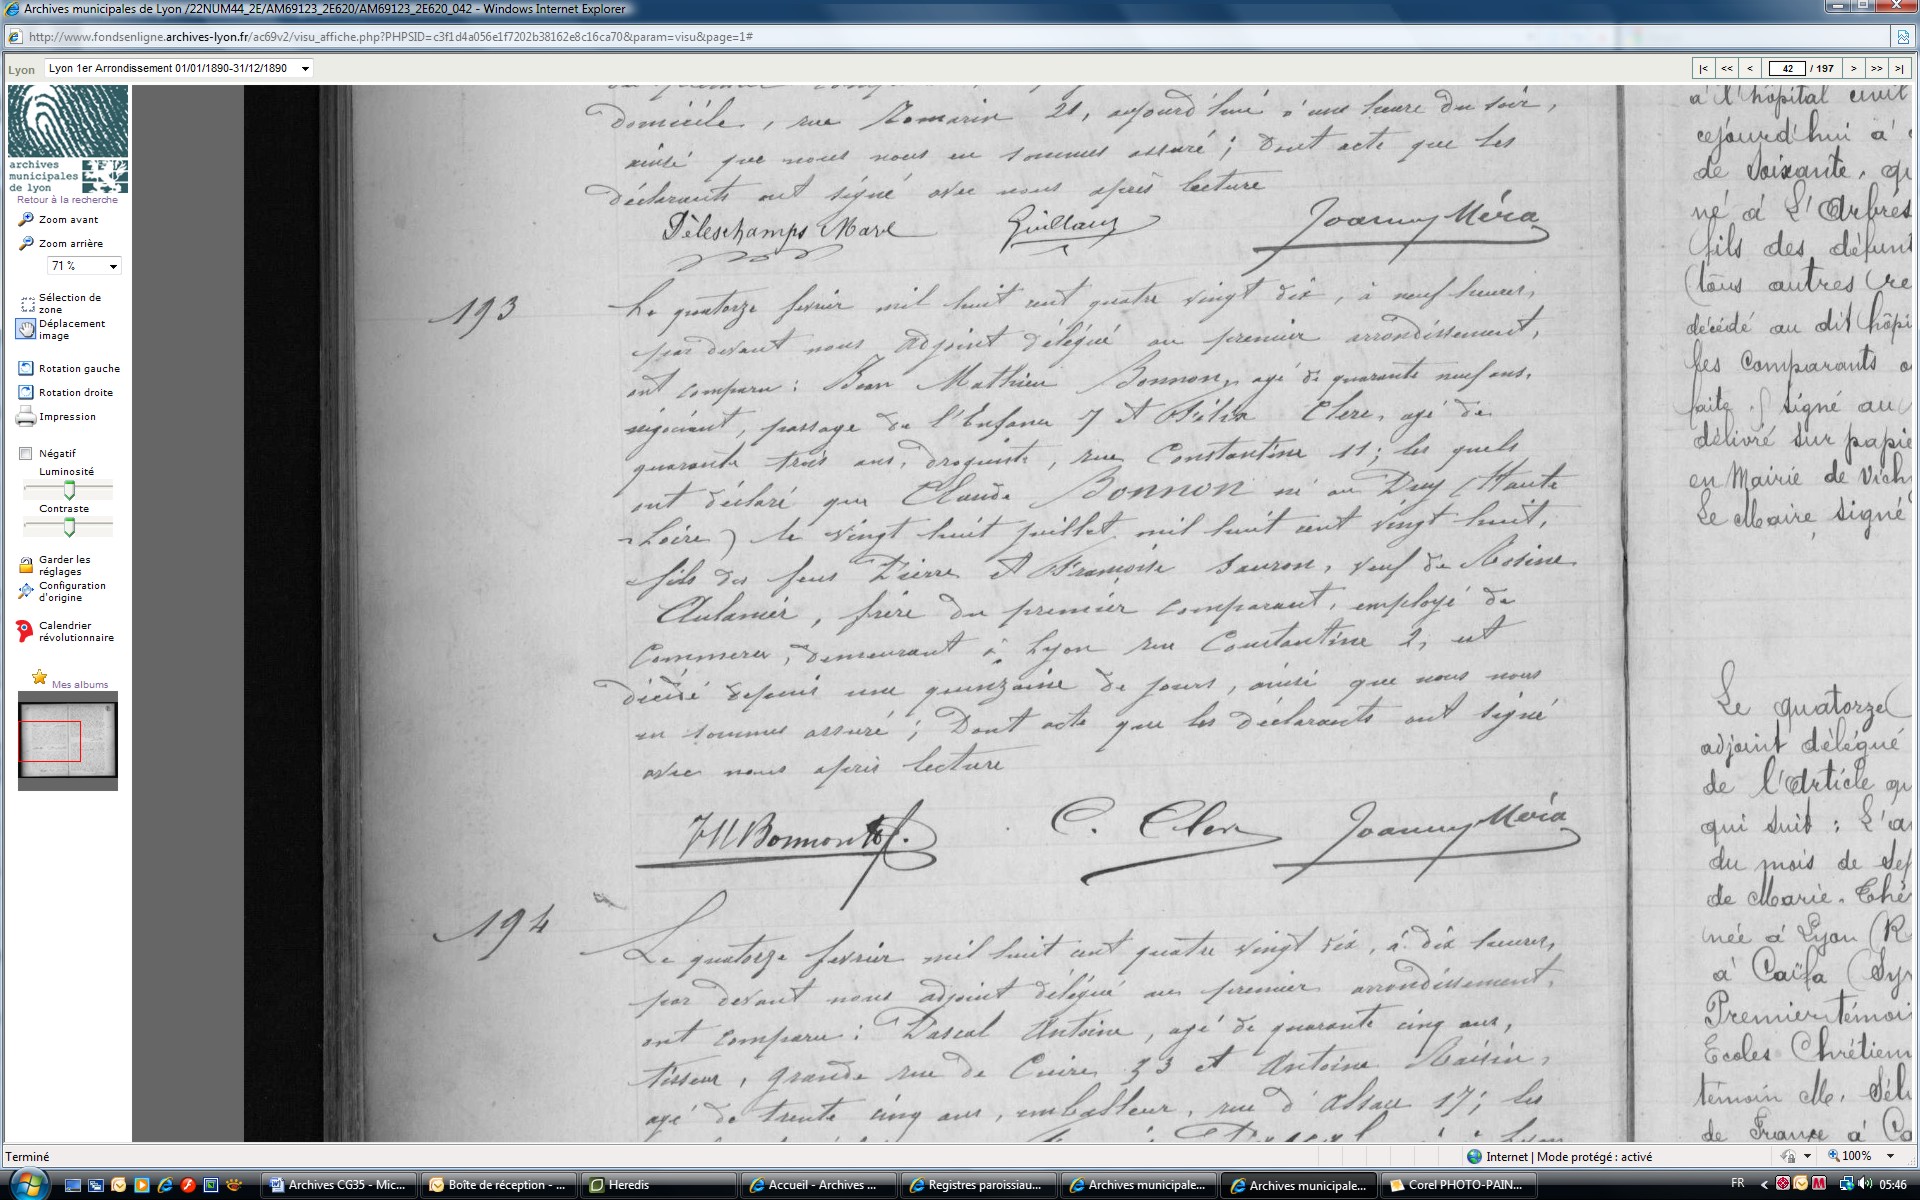 Archives municipales de Lyon /22NUM44_2E/AM69123_2E620/AM69123_2E620_042 - Windows Internet Explorer
http://www.fondsenligne.archives-lyon.fr/ac69v2/visu_affiche.php?PHPSID=c3f1d4a056e1f7202b38162e8c16ca70&param=visu&page=1#
Lyon
Lyon 1er Arrondissement 01/01/1890-31/12/1890
|< << < 42 / 197 > >> >|
archives
municipales
de lyon
Retour à la recherche
Zoom avant
Zoom arrière
71 %
Sélection de
zone
Déplacement
image
Rotation gauche
Rotation droite
Impression
Négatif
Luminosité
Contraste
Garder les
réglages
Configuration
d'origine
Calendrier
révolutionnaire
Mes albums
domicile, rue Romarin 21, aujourd'hui à une heure du soir,
ainsi que nous nous en sommes assuré; Dont acte que les
déclarants ont signé avec nous après lecture
Déleschamps Joanny Méra
193
Le quatorze fevrier mil huit cent quatre vingt dix, à neuf heures,
par devant nous adjoint délégué au premier arrondissement,
ont comparu: Jean Mathieu Bonnon, agé de quarante neuf ans,
négociant, passage de l'Enfance 7 et Félix Clerc, agé de
quarante trois ans, droguiste, rue Constantine 11; les quels
ont déclaré que Claude BONNON né au Puy (Haute
Loire) le vingt huit juillet mil huit cent vingt huit,
fils des feus Pierre et Françoise Sauron, veuf de Rosine
Aulanier, frère du premier comparant, employé de
commerce, demeurant à Lyon rue Constantine 2, est
décédé depuis une quinzaine de jours, ainsi que nous nous
en sommes assuré; Dont acte que les déclarants ont signé
avec nous après lecture
JM Bonnon C. Clerc Joanny Méra
194
Le quatorze fevrier mil huit cent quatre vingt dix, à dix heures,
par devant nous adjoint délégué au premier arrondissement,
ont comparu: Pascal Antoine, agé de quarante cinq ans,
tisseur, grande rue de Cuire 33 et Antoine Raisin,
agé de trente cinq ans, emballeur, rue d'Alsace 17; les
à l'hôpital civil
cejourd'hui à
de soixante, qu
né à L'Arbres
fils des défunt
(tous autres re
décédé au dit hôpi
les comparants o
faite. Signé au
délivré sur papie
en Mairie de Vich
Le Maire signé
Le quatorze
adjoint délégué
de l'article qu
qui suit: L'a
du mois de Sep
de Marie-Thé
née à Lyon (R
à Caïfa (Sy
Premier témoi
Ecoles Chrétien
témoin M.
de France à Ca
Terminé
Internet | Mode protégé : activé
100%
Archives CG35 - Mic...
Boîte de réception - ...
Heredis
Accueil - Archives ...
Registres paroissiau...
Archives municipale...
Archives municipale...
Corel PHOTO-PAIN...
FR
05:46